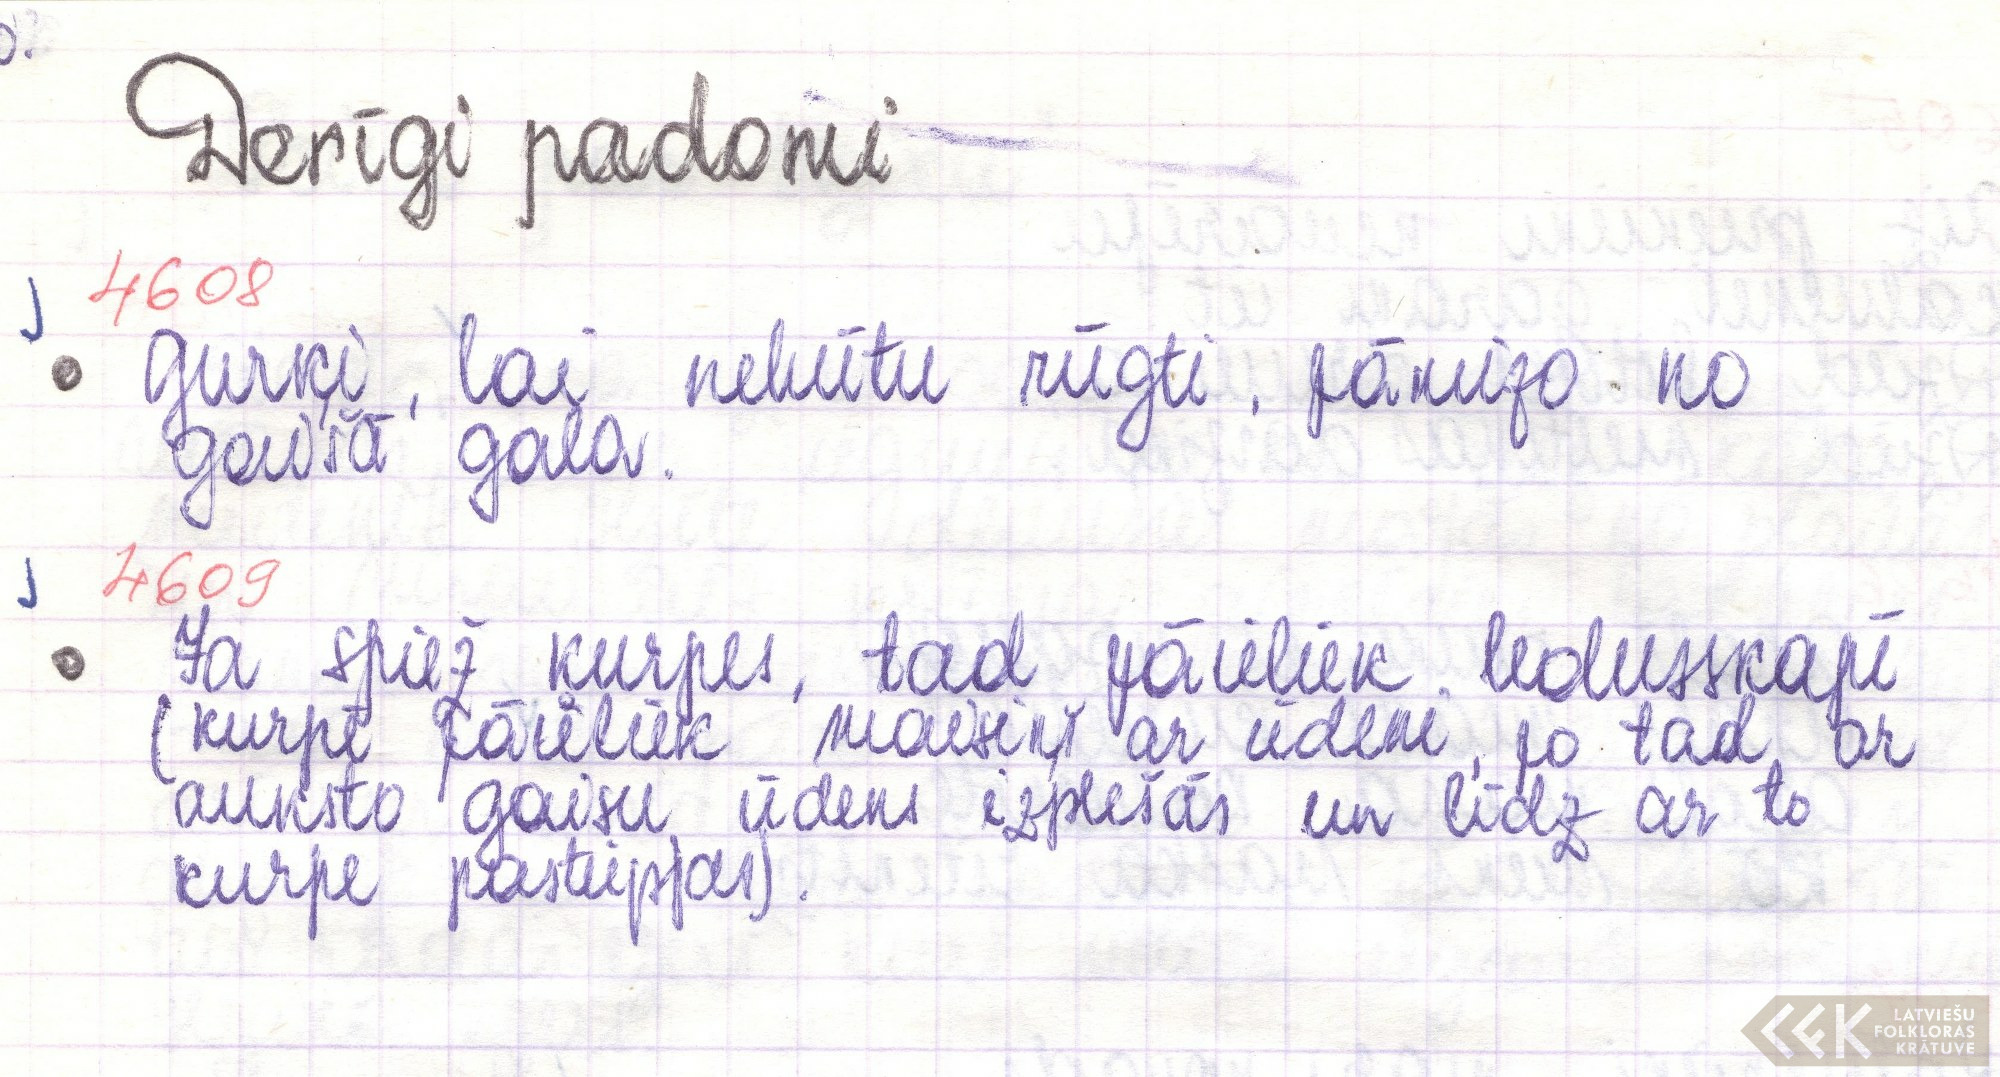 Derīgi padomi
4608
Gurķi, lai nebūtu rūgti, jāmizo no
gaišā gala.
4609
Ja spiež kurpes, tad jāieliek ledusskapī
(kurpē jāieliek maisiņš ar ūdeni, jo tad ar
auksto gaisu ūdens izplešās un līdz ar to
kurpe pastiepjas).
LATVIEŠU
FOLKLORAS
KRĀTUVE